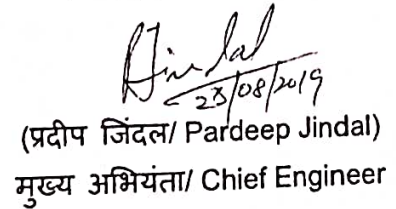 Jindal
23/08/2019
(प्रदीप जिंदल/ Pardeep Jindal)
मुख्य अभियंता/ Chief Engineer